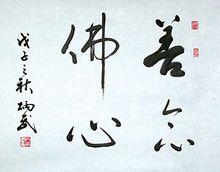 善念
佛心
戊子之秋